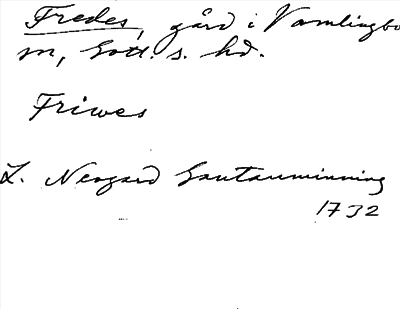 Fredes, gård i Vamlingbo
sn, Gotl. s. hd.
Friwes
L. Neogard Gautauminning
1732